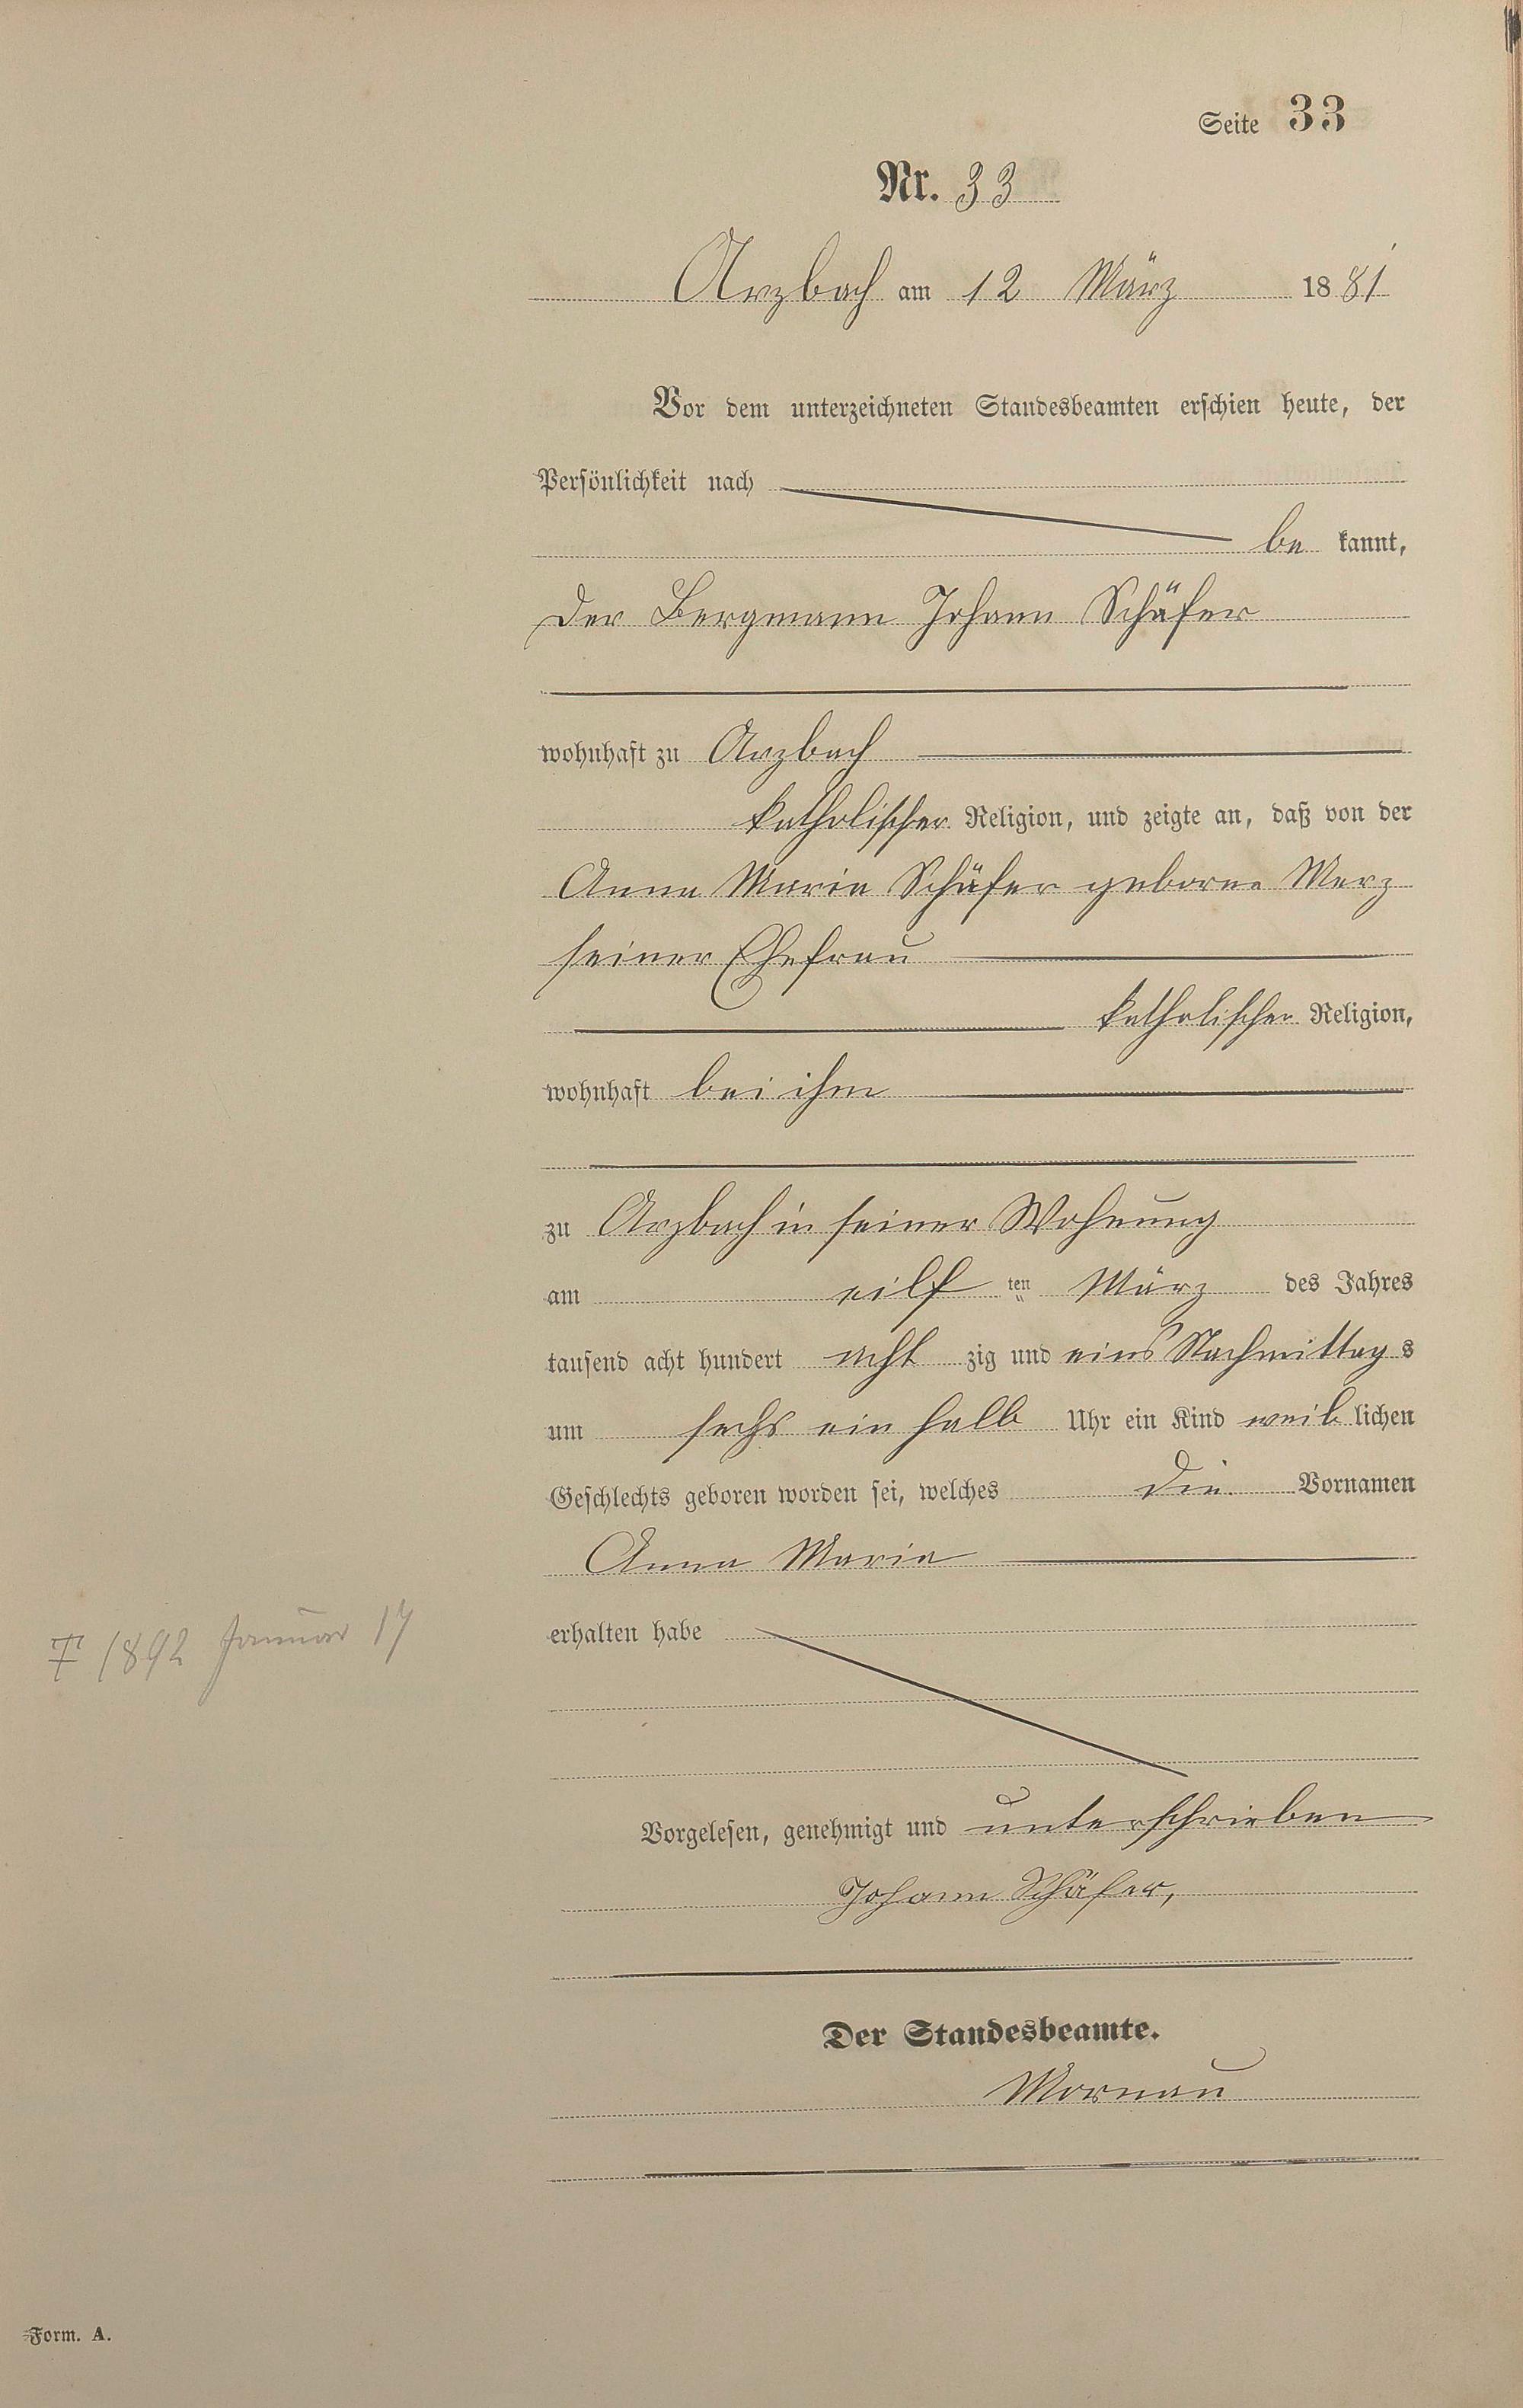 Seite 33
Nr. 33
Arzbach am 12 März 1881
Vor dem unterzeichneten Standesbeamten erschien heute, der
Persönlichkeit nach
be kannt,
der Bergmann Johann Schäfer
wohnhaft zu Arzbach
katholischer Religion, und zeigte an, daß von der
Anna Maria Schäfer geborne Merz
seiner Ehefrau
katholischer Religion,
wohnhaft bei ihm
zu Arzbach in seiner Wohnung
am eilf ten März des Jahres
tausend acht hundert acht zig und eins Nachmittags
um sechs ein halb Uhr ein Kind weiblichen
Geschlechts geboren worden sei, welches die Vornamen
Anna Maria
† 1892 Januar 17
erhalten habe
Vorgelesen, genehmigt und unterschrieben
Johann Schäfer,
Der Standesbeamte.
Mornau
Form. A.